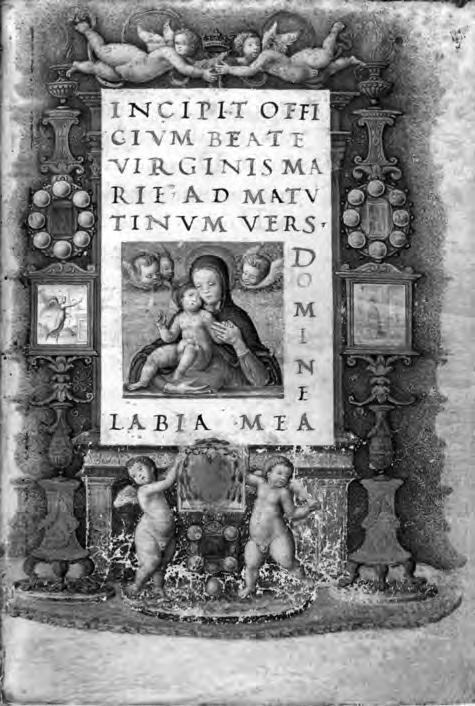 INCIPIT OFFI
CIVM BEATE
VIRGINIS MA
RIE· AD MATV
TINVM VERS·
DOMINE
LABIA MEA